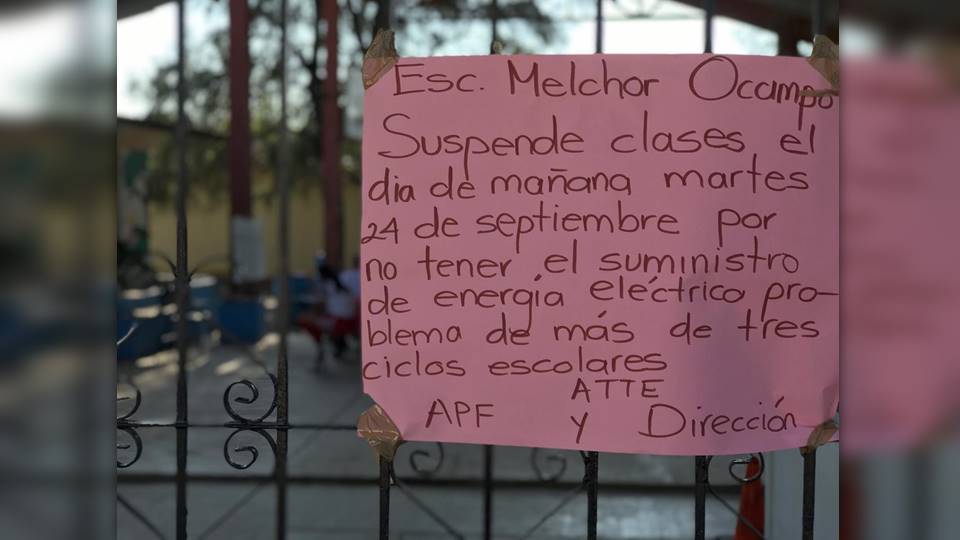 Esc. Melchor Ocampo
Suspende clases el
dia de mañana martes
24 de septiembre por
no tener el suministro
de energía eléctrico pro-
blema de más de tres
ciclos escolares
ATTE
APF y Dirección